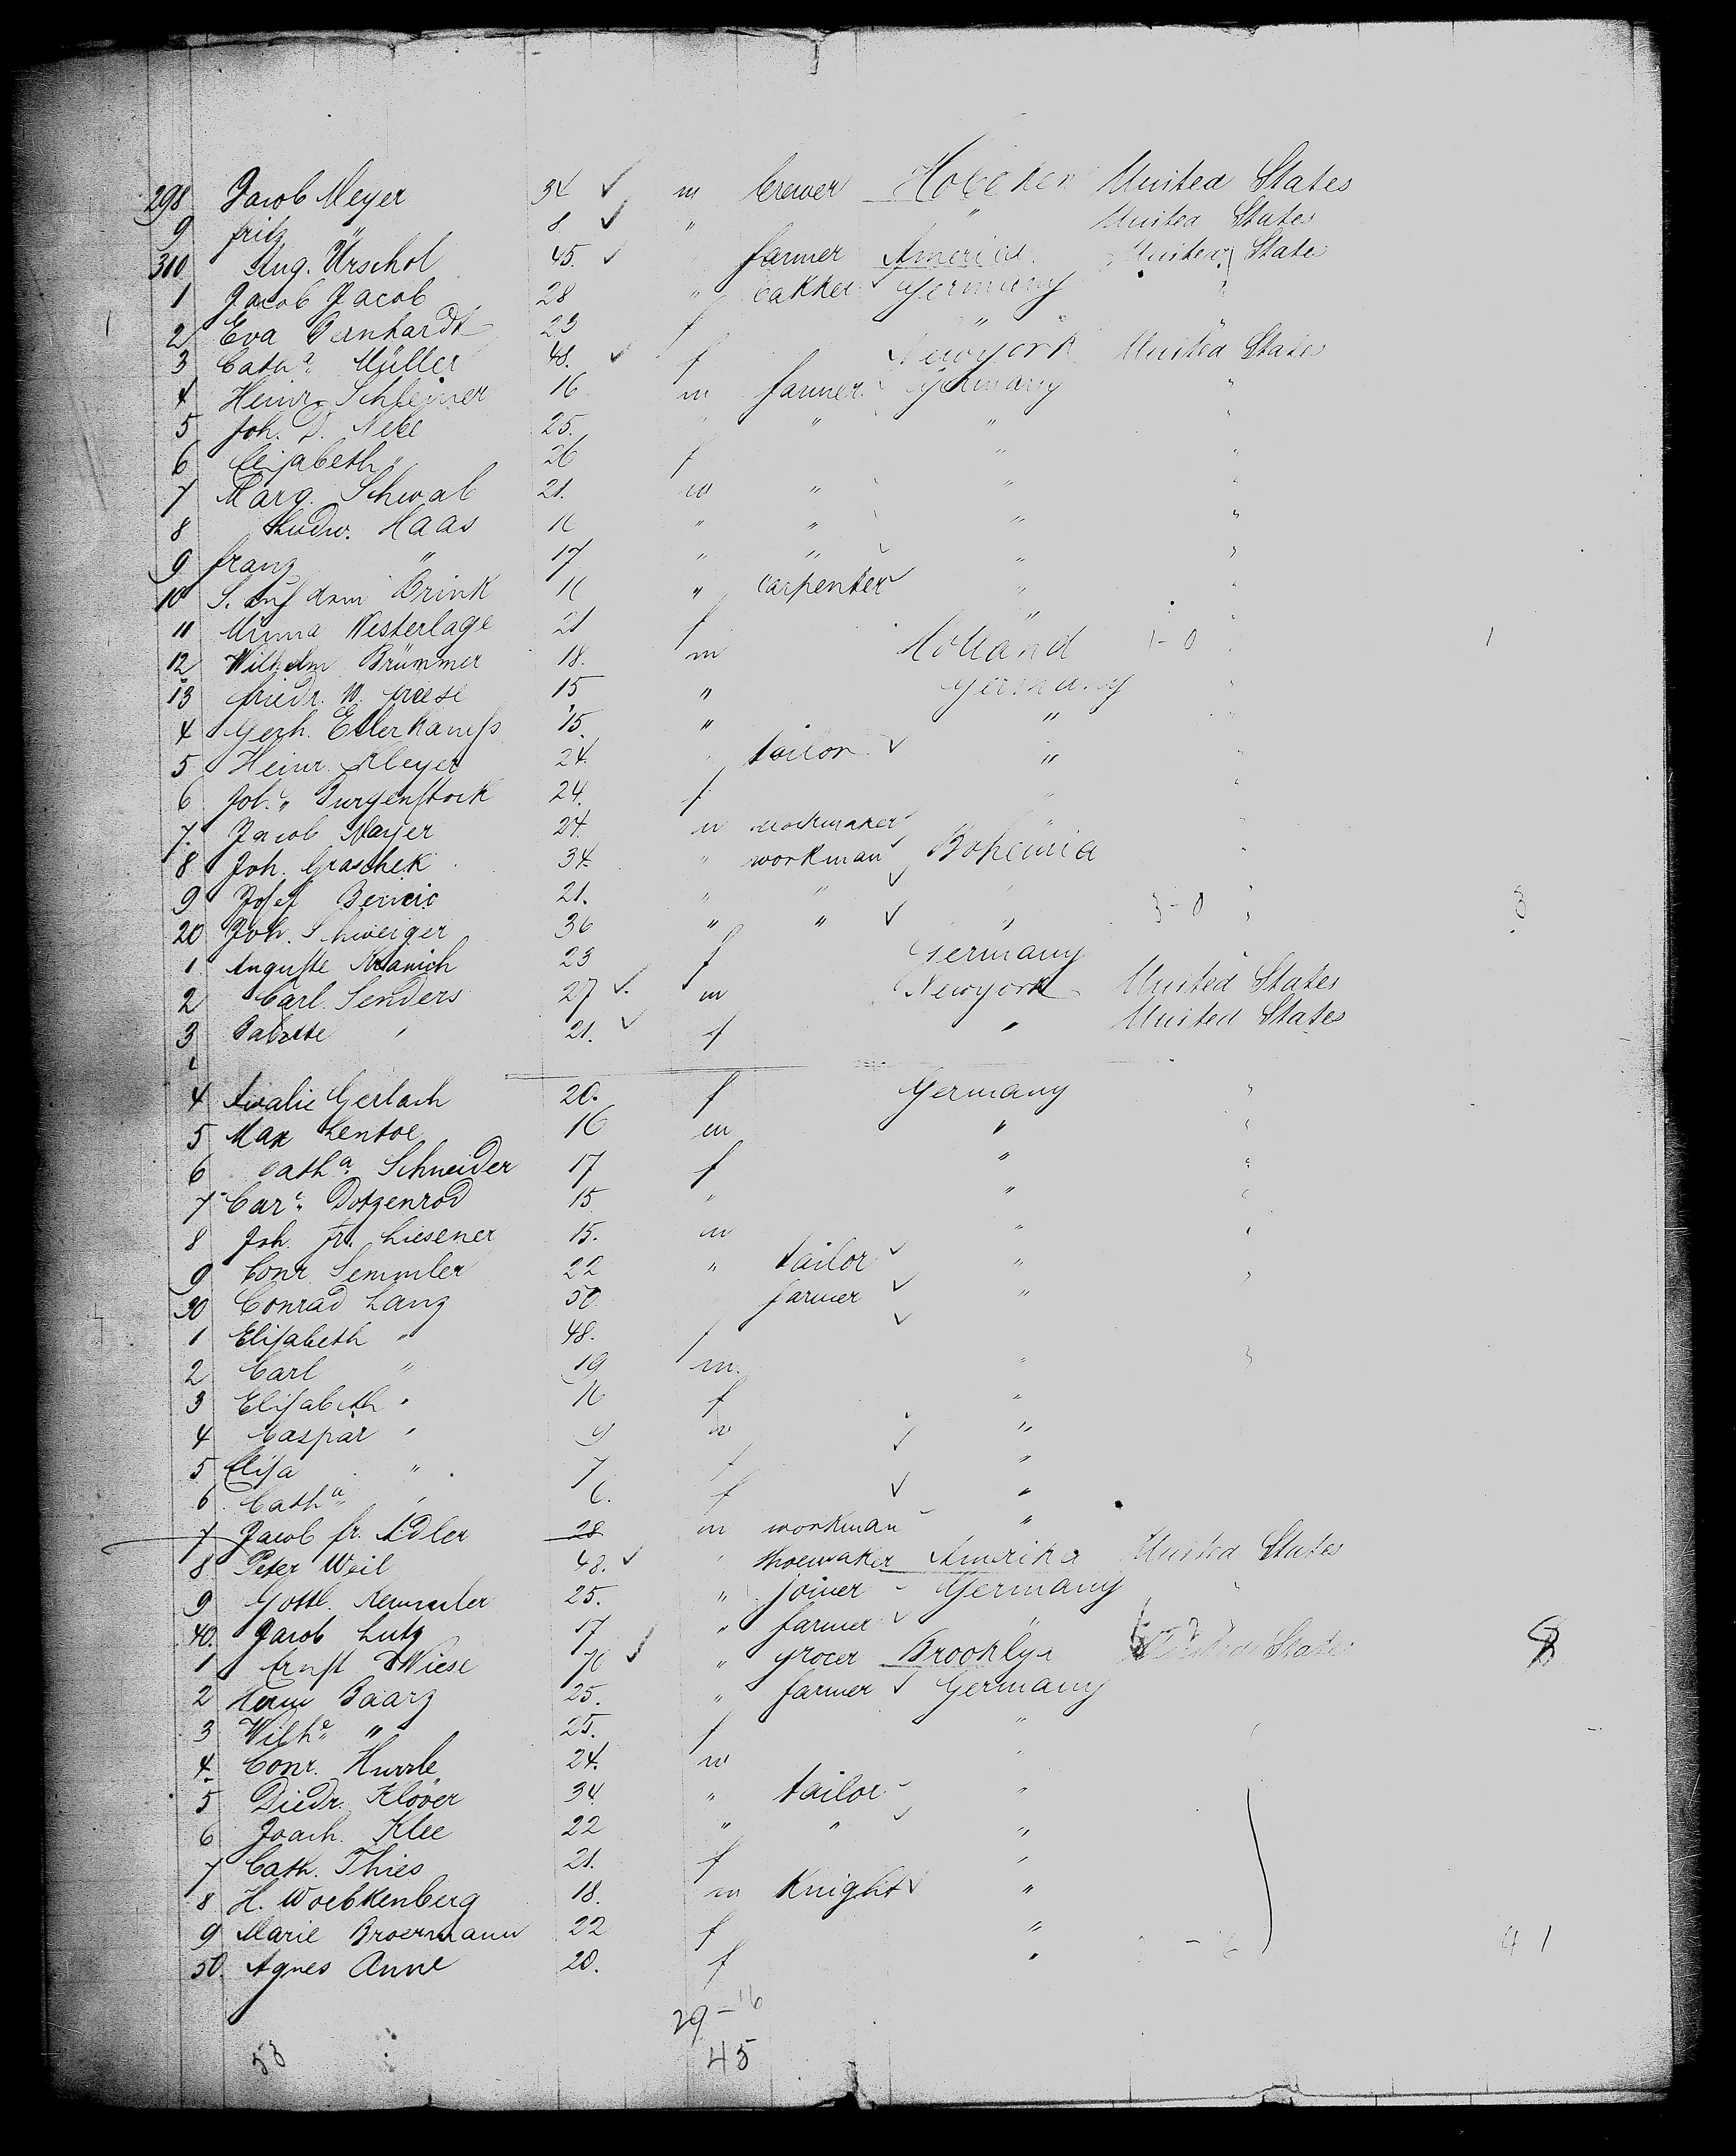 298 Jacob Meyer 34 ✓ m brewer Hoboken United States
9 fritz " 8 ✓ " " United States
300 Aug. Urschol 45. ✓ farmer America United States
1 Jacob Jacob 28 " bakker ✓ Germany "
2 Eva Bernhardt 23 f " "
3 Catha. Müller 48. ✓ f Newyork United States
4 Heinr. Schleiner 16 m farmer ✓ Germany "
5 Joh. D. Nebe 25. " " " "
6 Elisabeth " 26 f " "
7 Marg. Schwab 21. m " " "
8 Ludw. Haas 16 " " " "
9 franz " 17 " " " "
10 S. auf dem Brink 16 " carpenter ✓ " "
11 Minna Westerlage 21 f " "
12 Wilhelm Brümmer 18. m Holland 1-0 " 1
13 friedr. W. freese 15 " Germany "
4 Gerh. Ellerkamps 15. " " "
5 Heinr. Meyer 24. " tailor ✓ " "
6 Joh. Burgenstock 24. f " "
7. Jacob Mayer 24. m clockmaker " "
8 Joh. Graschek 34. " workman ✓ Bohemia "
9 Josef 21. " " ✓ " 3-0 " 3
20 Joh. Schweiger 36 " " ✓ " "
1 Auguste Kranich 23 f Germany "
2 Carl Senders 27 ✓ m Newyork United States
3 Babette " 21. ✓ f " United States
4 Amalie Gerlach 20. f Germany "
5 Max 16 m " "
6 Catha. Schneider 17 f " "
7 Car. Dotzenrod 15 " " "
8 Joh. Fr. Liesener 15. m " "
9 Conr. Semmler 22 " tailor ✓ " "
30 Conrad Lang 50 farmer ✓ "
1 Elisabeth " 48. f ✓
2 Carl " 19 m. " "
3 Elisabeth " 16 f "
4 Caspar " 9 m "
5 Elisa " 7 f "
6 Catha. " 6. f ✓ "
7 Jacob fr. Adler 28 m workman "
8 Peter Weil 48. ✓ " shoemaker Amerika United States
9 Gottl. Kemmler 25. " joiner Germany "
40. Jacob Lutz 17 " farmer ✓ " "
1 Ernst Wiese 76 ✓ " grocer Brooklyn United States 8
2 Herm Baarz 25. " farmer ✓ Germany
3 Wilhe. " 25. f "
4. Conr. Hurrle 24. m "
5 Diedr. Klöver 34. " tailor "
6 Joach. Klee 22 " " ✓ "
7 Cath. Thies 21. f "
8 H. Woebkenberg 18. m Knight ✓ "
9 Marie Broermann 22 f " 41
50. Agnes Anne 20. f "
29-16
53 45